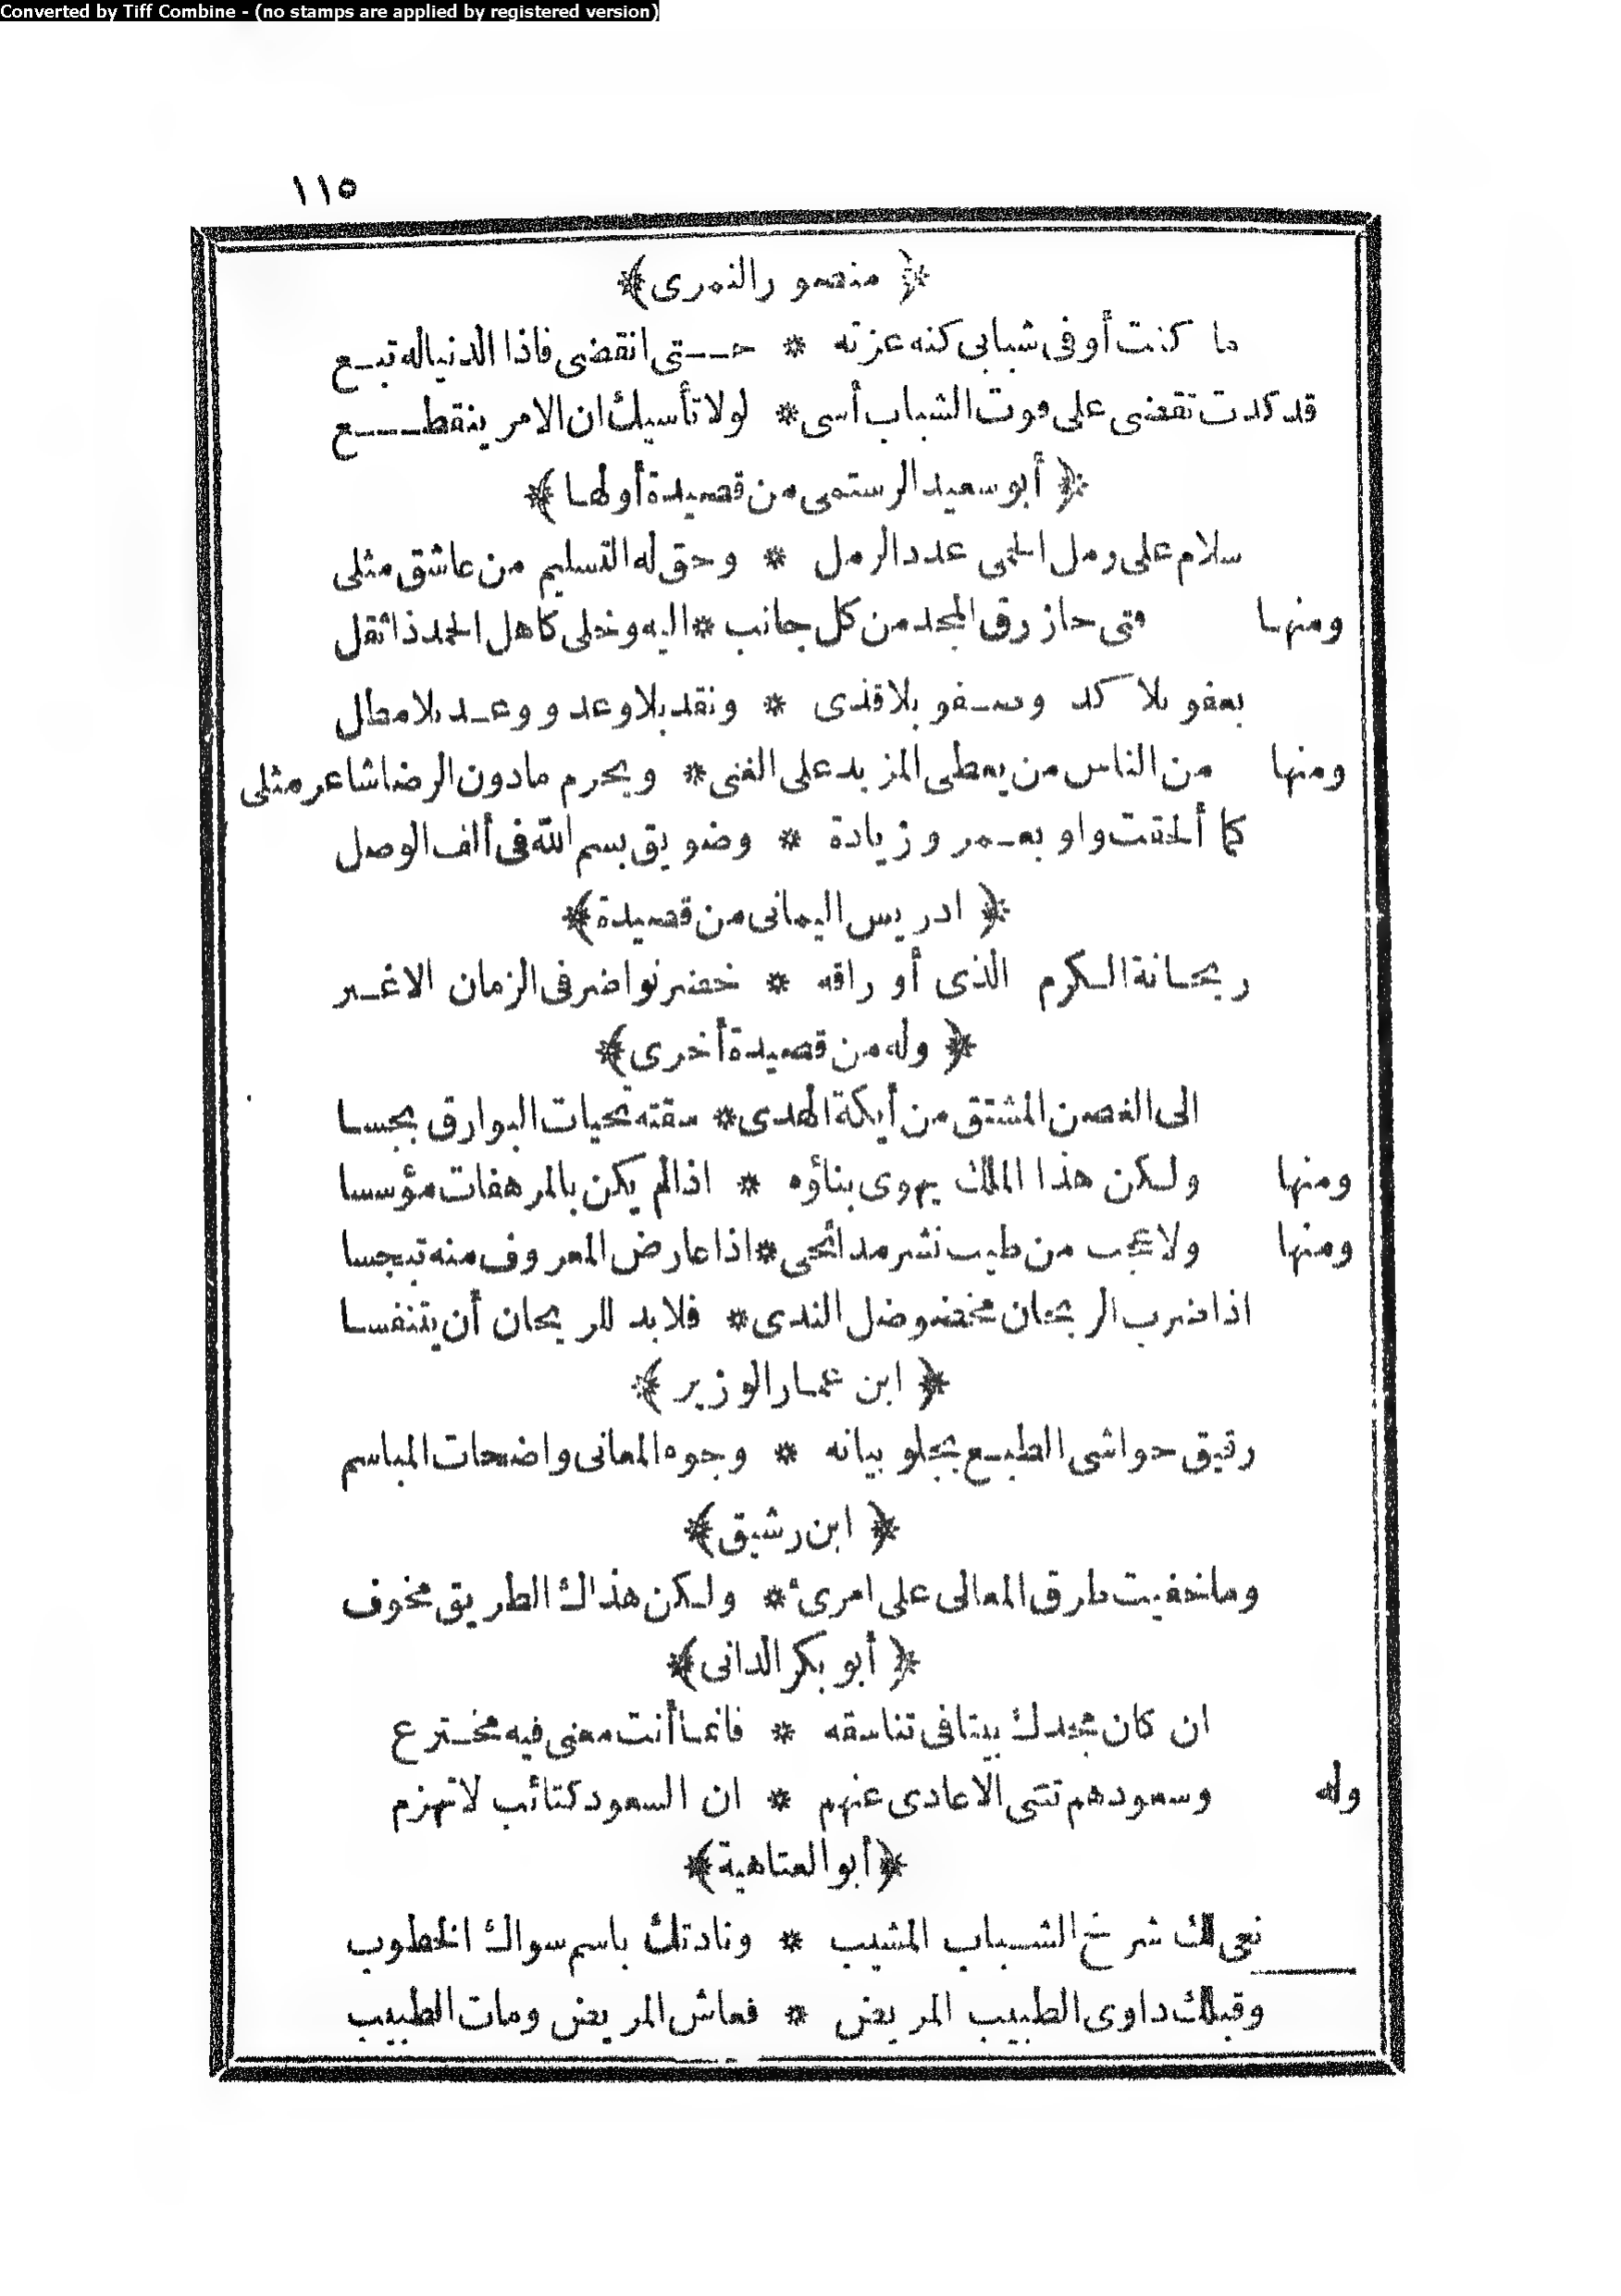 Converted by Tiff Combine - (no stamps are applied by registered version)
١١٥
﴿ منصور النمرى ﴾
ما كنت أوفى شبابى كنه عزته * حتى انقضى فاذا الدنيا له تبع
قد كدت تقضى على فوت الشباب أسى * لولا تأسيك ان الامر ينقطع
﴿ أبو سعيد الرستمى من قصيدة أولها ﴾
سلام على رمل الحمى عدد الرمل * وحق له التسليم من عاشق مثلى
ومنها فتى حاز رق المجد من كل جانب * اليه وخلى كاهل الحمد ذا ثقل
بعفو بلا كد وصفو بلا قذى * ونقد بلا وعد ووعد بلا مطل
ومنها من الناس من يعطى المزيد على الغنى * ويحرم مادون الرضا شاعر مثلى
كما ألحقت واو بعمرو زيادة * وضويق بسم الله فى ألف الوصل
﴿ ادريس اليمانى من قصيدة ﴾
ريحانة الكرم الذى أوراقه * خضر نواضر فى الزمان الاغبر
﴿ وله من قصيدة أخرى ﴾
الى الغصن المشتق من أيكة الهدى * سقته تحيات البوارق بجسا
ومنها ولكن هذا الملك يهوى بناؤه * اذا لم يكن بالمرهفات مؤسسا
ومنها ولا عجب من طيب نشر مدائحى * اذا عارض المعروف منه تبجسا
اذا ضرب الريحان مخضوضل الندى * فلا بد للريحان أن يتنفسا
﴿ ابن عمار الوزير ﴾
رقيق حواشى الطبع يجلو بيانه * وجوه المعانى واضحات المباسم
﴿ ابن رشيق ﴾
وما خفيت طرق المعالى على امرئ * ولكن هذاك الطريق مخوف
﴿ أبو بكر الدانى ﴾
ان كان مجدك بيتا فى تناسقه * فانما أنت معنى فيه مخترع
وله وسعودهم تثنى الاعادى عنهم * ان السعود كتائب لا تهزم
﴿ أبو العتاهية ﴾
نعى لك شرخ الشباب المشيب * ونادتك باسم سواك الخطوب
وقبلك داوى الطبيب المريض * فعاش المريض ومات الطبيب